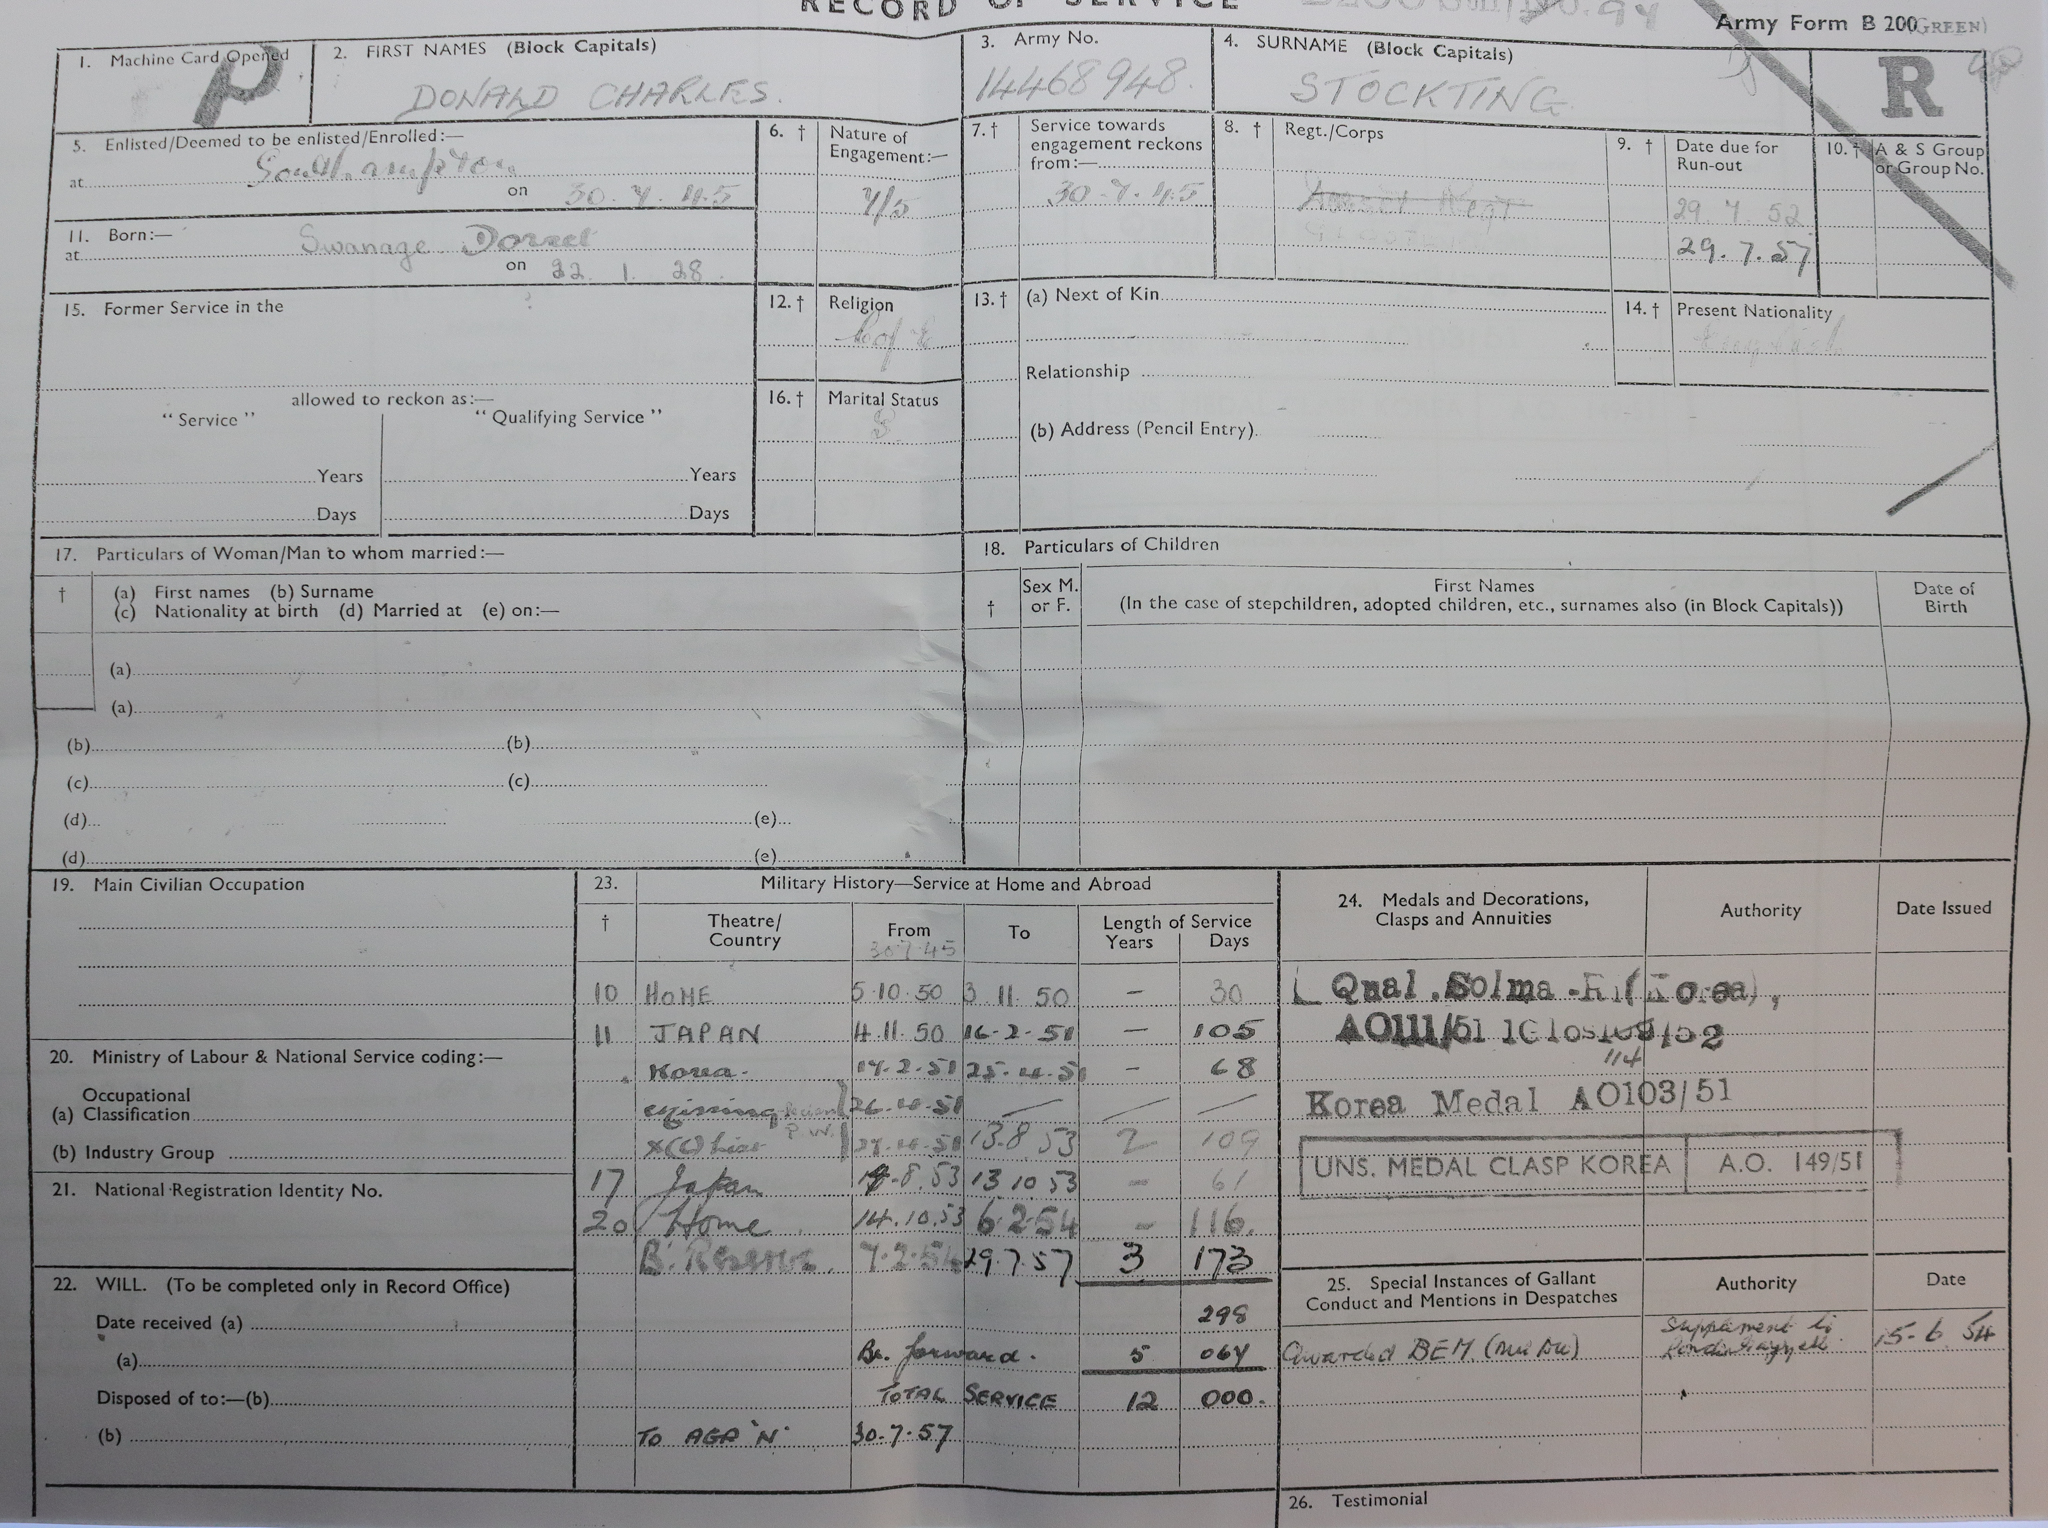 RECORD OF SERVICE
Army Form B 200 (GREEN)
1. Machine Card Opened
P
2. FIRST NAMES (Block Capitals)
DONALD CHARLES.
3. Army No.
14468948.
4. SURNAME (Block Capitals)
STOCKTING
R
5. Enlisted/Deemed to be enlisted/Enrolled:—
at Southampton
on 30.7.45
6. † Nature of Engagement:—
7/5
7. † Service towards engagement reckons from:—
30.7.45
8. † Regt./Corps
9. † Date due for Run-out
29.7.52
29.7.57
10. † A & S Group or Group No.
11. Born:—
at Swanage Dorset
on 22.1.28.
12. † Religion
C of E
13. † (a) Next of Kin
Relationship
(b) Address (Pencil Entry)
14. † Present Nationality
English
15. Former Service in the
allowed to reckon as:—
"Service" "Qualifying Service"
Years Years
Days Days
16. † Marital Status
S
17. Particulars of Woman/Man to whom married:—
† (a) First names (b) Surname
(c) Nationality at birth (d) Married at (e) on:—
(a)
(a)
(b) (b)
(c) (c)
(d) (e)
(d) (e)
18. Particulars of Children
† Sex M. or F.
First Names
(In the case of stepchildren, adopted children, etc., surnames also (in Block Capitals))
Date of Birth
19. Main Civilian Occupation
20. Ministry of Labour & National Service coding:—
Occupational
(a) Classification
(b) Industry Group
21. National Registration Identity No.
22. WILL. (To be completed only in Record Office)
Date received (a)
(a)
Disposed of to:—(b)
(b)
23. Military History—Service at Home and Abroad
† Theatre/Country From To Length of Service Years Days
30.7.45
10 HOME 5.10.50 3.11.50 — 30
11 JAPAN 4.11.50 16.2.51 — 105
Korea. 17.2.51 25.4.51 — 68
Missing 26.4.51
P.W. 27.4.51 13.8.53 2 109
17 Japan 14.8.53 13.10.53 — 61
20 Home 14.10.53 6.2.54 — 116.
B. Reserve. 7.2.54 29.7.57 3 173
298
Bt. forward. 5 067
TOTAL SERVICE 12 000.
TO AGR 'N' 30.7.57
24. Medals and Decorations, Clasps and Annuities
Authority
Date Issued
Qual. (Korea),
AO111/51
114
Korea Medal AO103/51
UNS. MEDAL CLASP KOREA A.O. 149/51
25. Special Instances of Gallant Conduct and Mentions in Despatches
Authority
Date
Awarded BEM. (Mil Div) Supplement to London Gazette 15.6.54
26. Testimonial